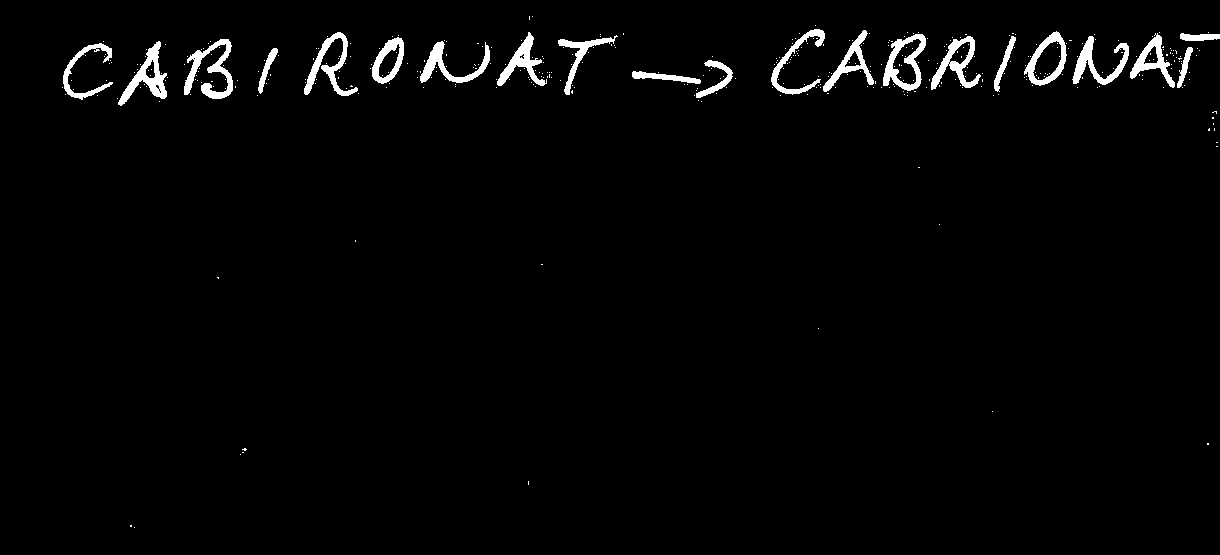 CABIRONAT → CABRIONAT